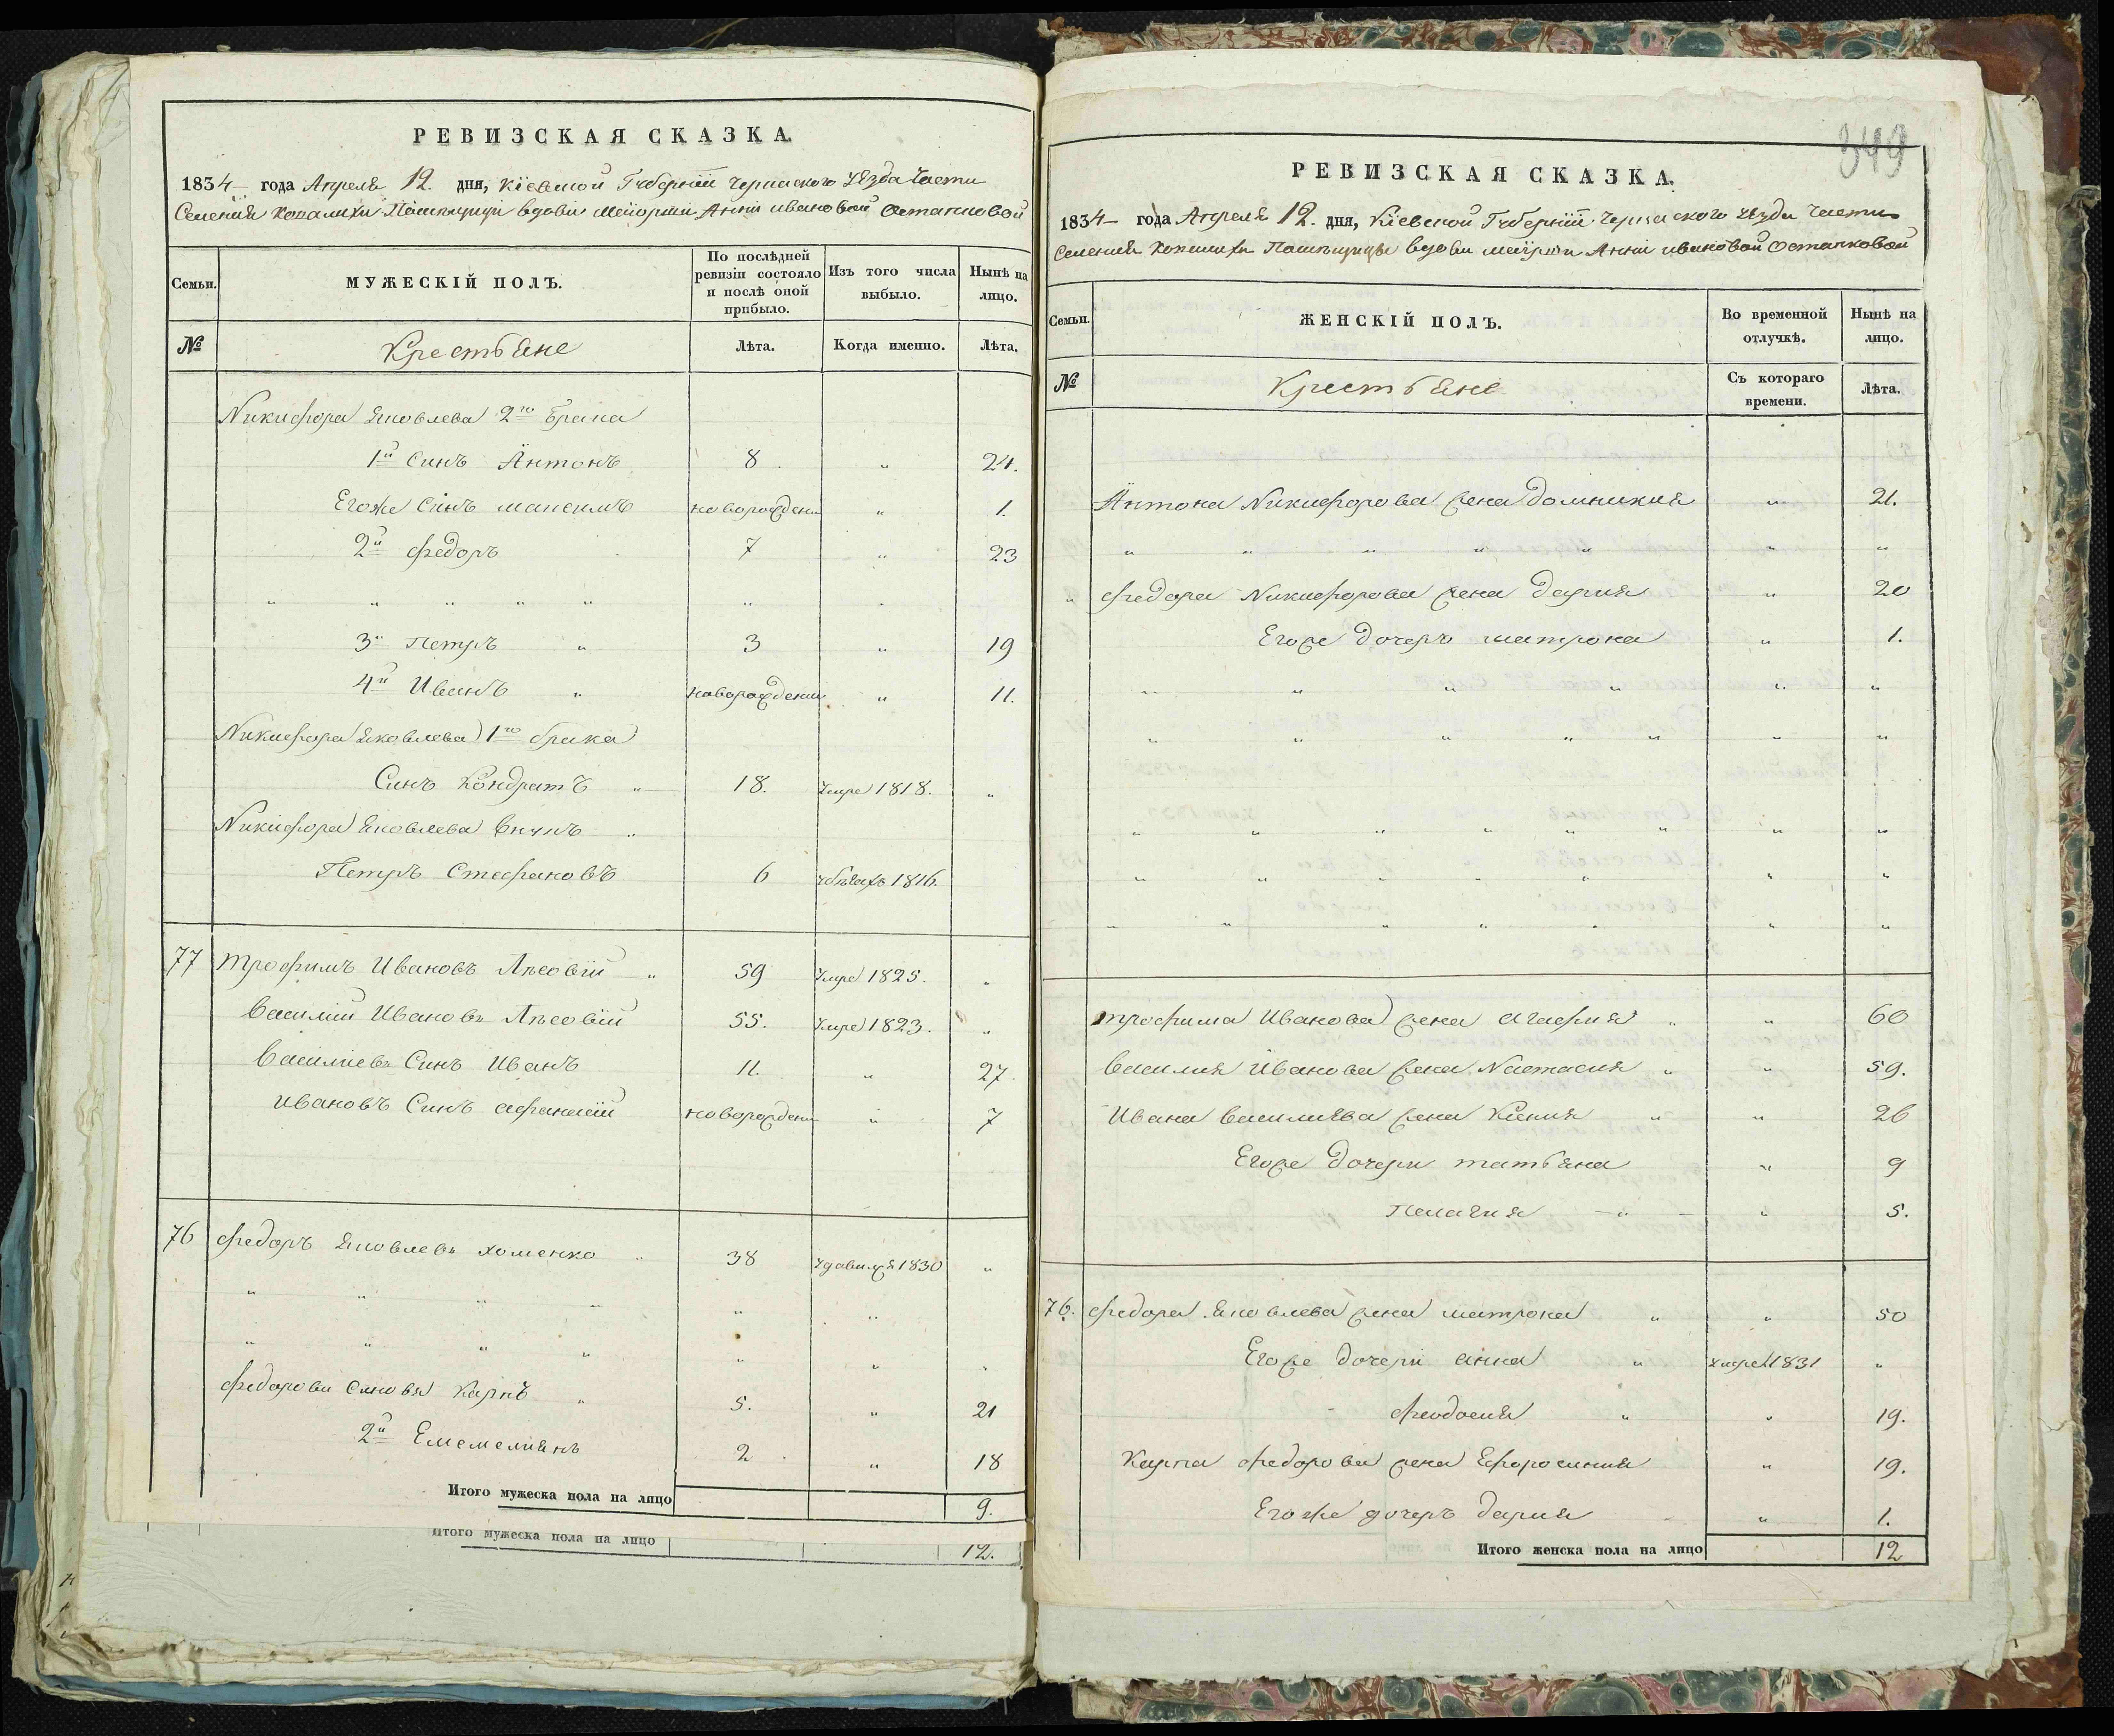 РЕВИЗСКАЯ СКАЗКА.
1834 года Апреля 12. дня, Кіевской Губерніи Черкаского Уезда Части
Селения Помѣщици вдови Меіорши Анни Ивановой Остапковой
Семьи. МУЖЕСКІЙ ПОЛЪ. По послѣдней ревизіи состояло и послѣ оной прибыло. Изъ того числа выбыло. Нынѣ на лицо.
№ Крестьяне Лѣта. Когда именно. Лѣта.
Никифора Яковлева 2го брака
1й Синъ Антонъ 8 " 24.
Егоже Синъ Максимъ новорожденн " 1.
2й Федоръ 7 " 23
" " " " " " "
3й Петръ " 3 " 19
4й Иванъ " новорожденн " 11.
Никифора Яковлева 1го брака
Синъ Кондратъ " 18. Умре 1818. "
Никифора Яковлева Внукъ "
Петръ Стефановъ 6 1816.
77 Трофимъ Ивановъ Лѣсовій " 59 Умре 1825. "
Василій Ивановъ Лѣсовій 55. Умре 1823. "
Василіевъ Синъ Иванъ 11. " 27.
Ивановъ Синъ Афанасій новорожденн " 7
76 Федоръ Яковлевъ Хоменко " 38 Удавился 1830 "
" " " " " "
" " " " " " "
Федорови Синовя Карпъ " 5. " 21
2й Емемелиянъ 2 " 18
Итого мужеска пола на лицо 9.
Итого мужеска пола на лицо 12.
349
РЕВИЗСКАЯ СКАЗКА.
1834 года Апреля 12. дня, Кіевской Губерніи Черкаского Уезда Части
Селения Помѣщици вдови Меіорши Анни Ивановой Остапковой
Семьи. ЖЕНСКІЙ ПОЛЪ. Во временной отлучкѣ. Нынѣ на лицо.
№ Крестьяне Съ котораго времени. Лѣта.
Антона Никифорова жена Домникия " 21.
" " " " " " "
" Федора Никифорова жена Дария " 20
Егоже дочеръ Матрона " 1.
" " " " " "
" " " " " " "
" " " " " " " "
" " " " " " "
" " " " " " "
Трофима Иванова жена Агафия " " 60
Василия Иванова жена Настасия " " 59.
Ивана Василиява жена Ксения " " 26
Егоже дочери Татьяна " 9
Пелагия " " 5.
76. Федора Яковлева жена Матрона " " 50
Егоже дочери Анна " Умре 1831 "
Феодосия " " 19.
Карпа Федорова жена Ефоросиния " 19.
Егоже дочеръ Дария " 1.
Итого женска пола на лицо 12